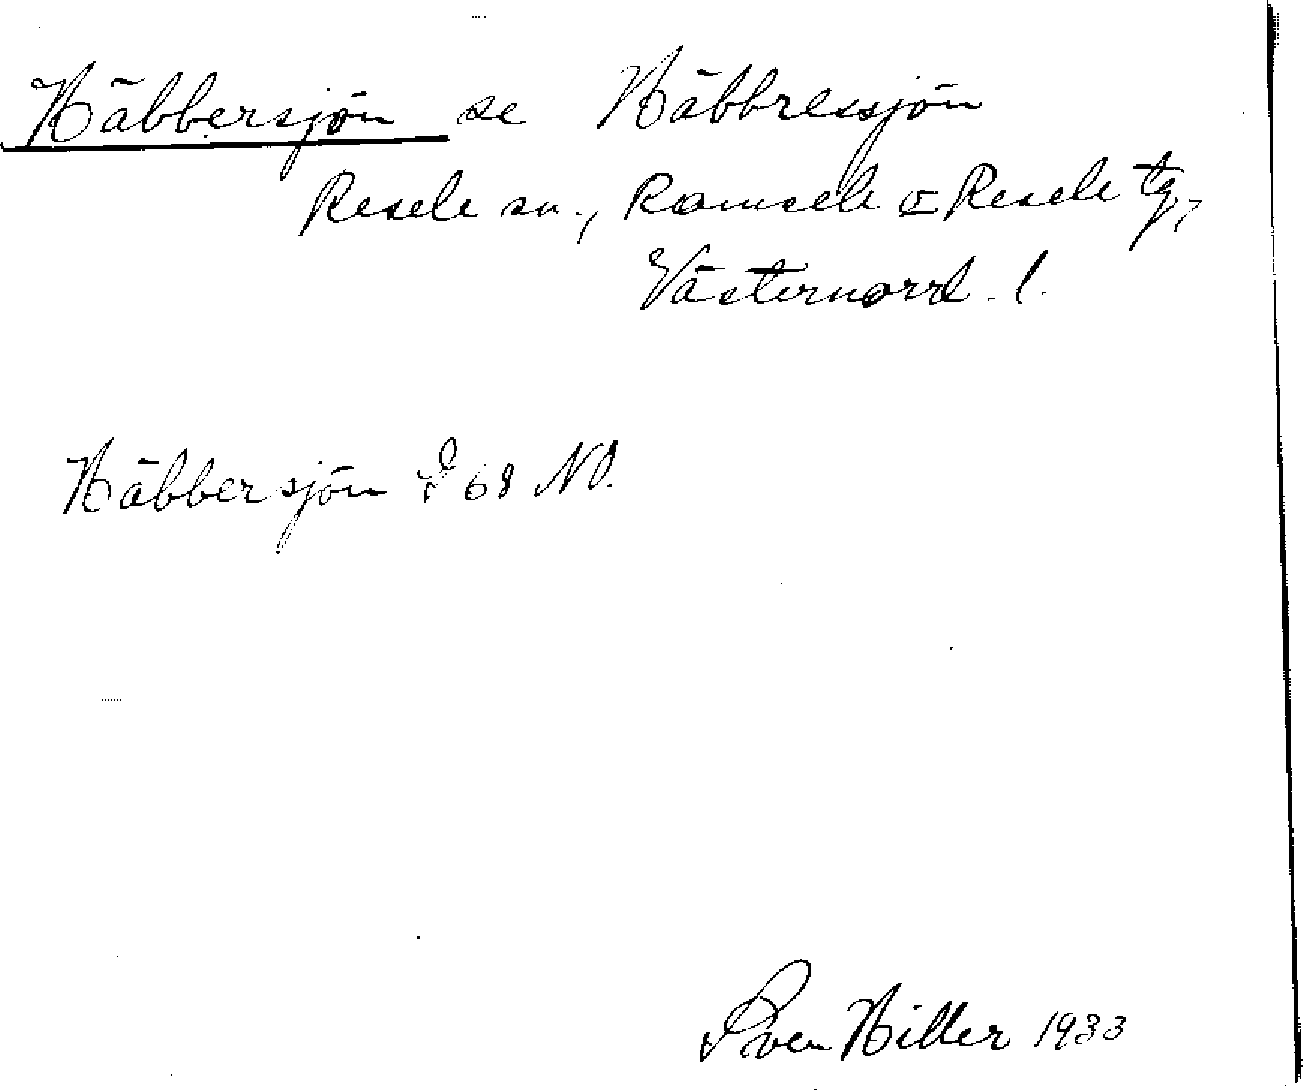 Häbbersjön se Häbbressjön
Resele sn., Ramsele o Resele tg,
Västernorrl. l.
Häbbersjön 68 NO.
Sven Hiller 1933